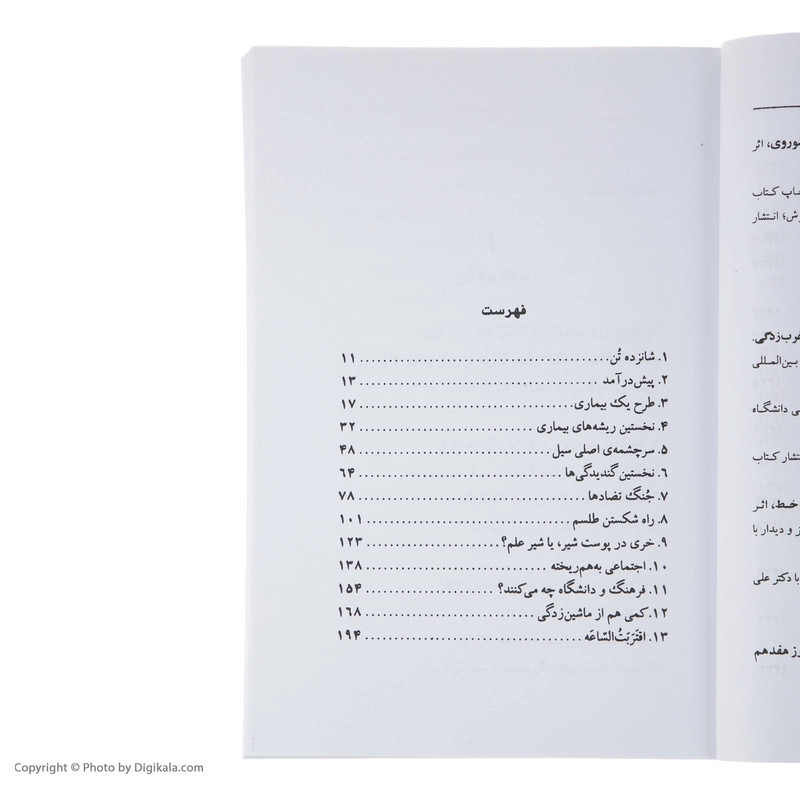 فهرست
۱. شانزده تُن........................................ ۱۱
۲. پیش‌درآمد ........................................ ۱۳
۳. طرح یک بیماری.................................... ۱۷
۴. نخستین ریشه‌های بیماری .............................. ۳۲
۵. سرچشمه‌ی اصلی سیل................................ ۴۸
۶. نخستین گندیدگی‌ها .................................. ۶۴
۷. جُنگ تضادها ...................................... ۷۸
۸. راه شکستن طلسم .................................. ۱۰۱
۹. خری در پوست شیر، یا شیر علم؟........................ ۱۲۳
۱۰. اجتماعی به‌هم‌ریخته ................................ ۱۳۸
۱۱. فرهنگ و دانشگاه چه می‌کنند؟ ...................... ۱۵۴
۱۲. کمی هم از ماشین‌زدگی .............................. ۱۶۸
۱۳. اقتَرَبَتُ‌السّاعَه ...................................... ۱۹۴
اثر
چاپ کتاب
انتشار
غرب‌زدگی.
بین‌المللی
دانشگاه
انتشار کتاب
خط، اثر
و دیدار با
با دکتر علی
هفدهم
Copyright © Photo by Digikala.com